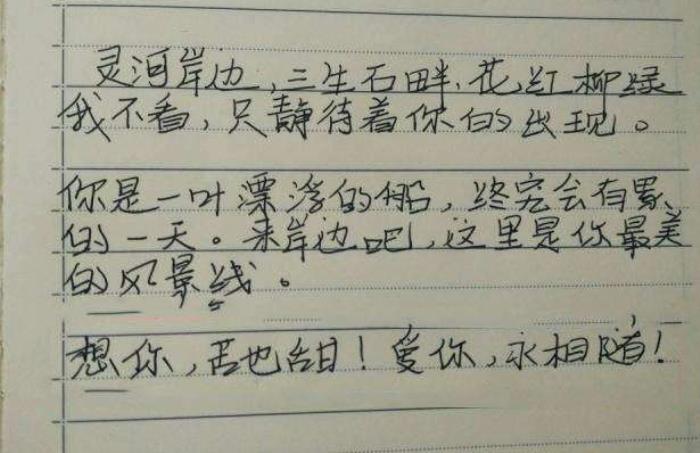 灵河岸边,三生石畔,花红柳绿
我不看,只静待着你的出现。
你是一叶漂浮的船,终究会有累
的一天。来岸边吧,这里是你最美
的风景线。
想你,苦也甜!爱你,永相随!